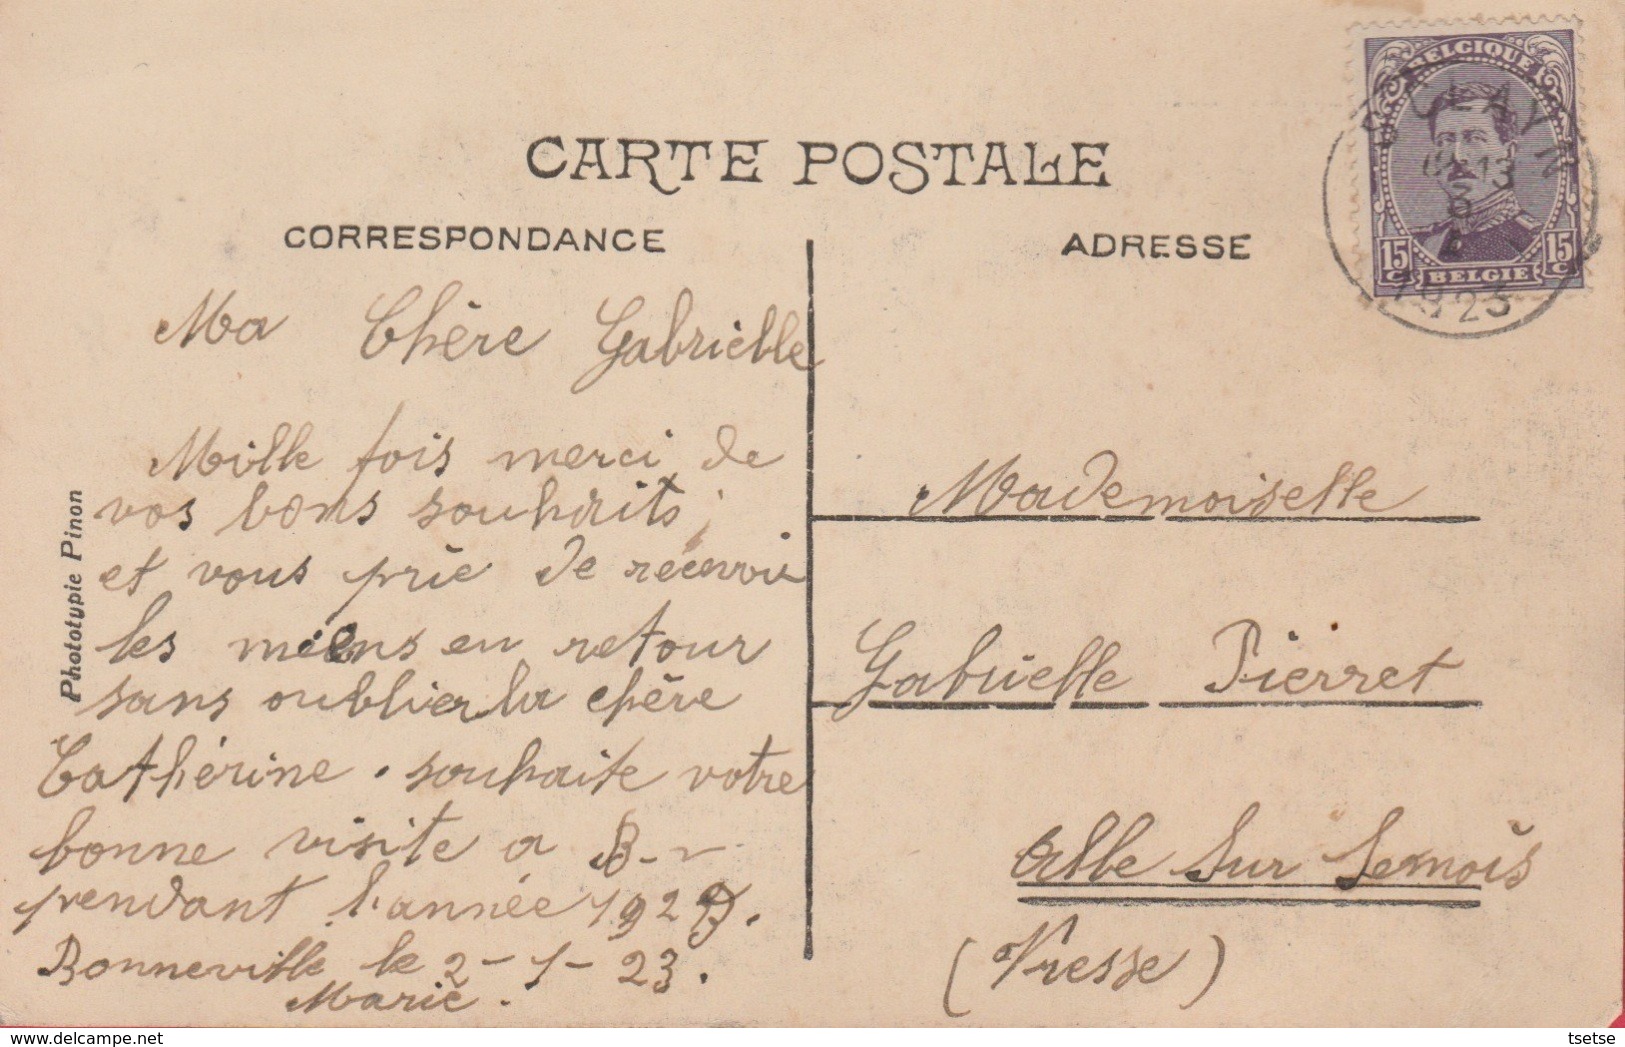 CARTE POSTALE
CORRESPONDANCE
ADRESSE
BELGIQUE
15 C
15 C
BELGIE
1923
Phototypie Pinon
Ma Chère Gabriėlle
Mille fois merci de
vos bons souhaits
et vous prie de recevoir
les miens en retour
sans oublier la chère
Cathérine. souhaite votre
bonne visite a B-v
pendant l'année 1923.
Bonneville le 2-1-23.
Marie.
Mademoiselle
Gabrielle Pierret
Alle Sur Semois
(Vresse)
tsetse